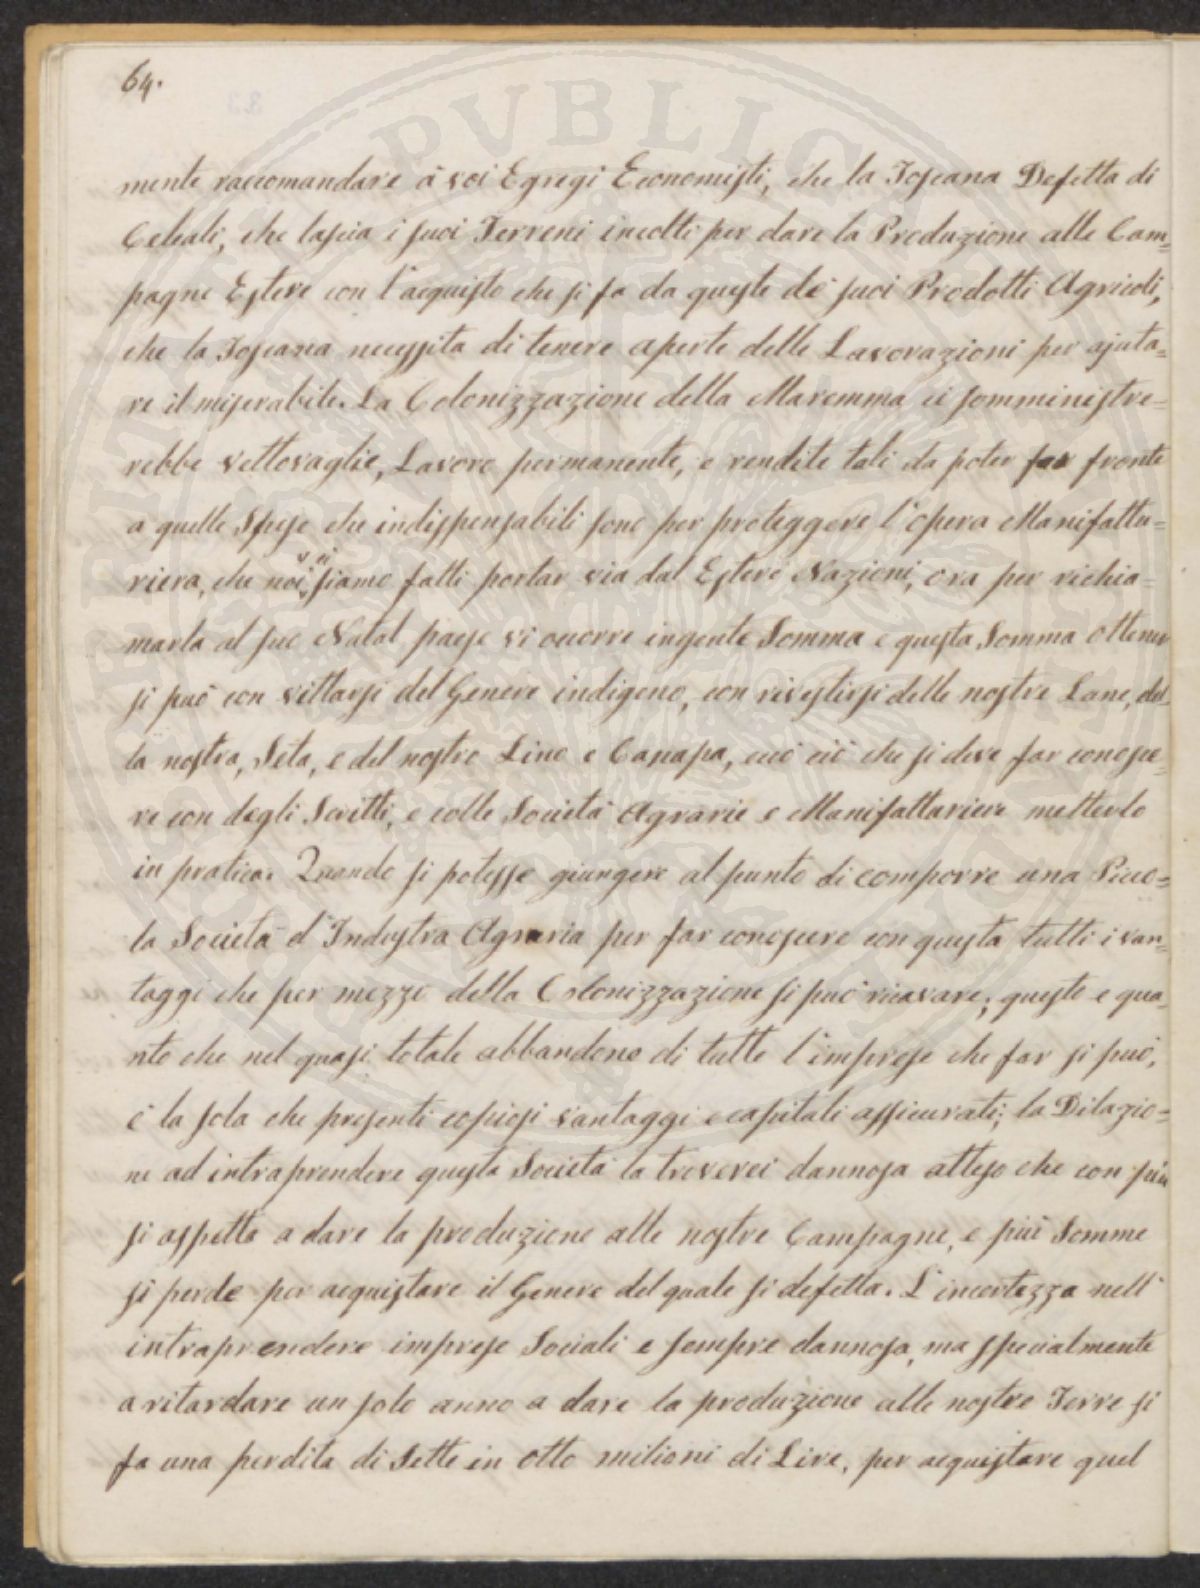 64.
mente raccomandare à voi Egregi Economisti, che la Toscana Defetta di
Celeali, che lascia i suoi Terreni incolti per dare la Produzione alle Cam=
pagne Estere con l'acquisto che si fa da queste de suoi Prodotti Agricoli,
che la Toscana necessita di tenere aperte delle Lavorazioni per ajuta=
re il miserabile. La Colonizzazione della Maremma ci somministre=
rebbe vettovaglie, Lavoro permanente, e rendite tali da poter far fronte
a quelle Spese che indispensabili sono per proteggere l'opera Manifattu=
riera, che noi vi siamo fatti portar via dal Estere Nazioni, ora per richia=
marla al suo Natal paese vi occorre ingente Somma e questa Somma ottener
si può con vittarsi del Genere indigeno, con rivestirsi delle nostre Lane, del=
la nostra, Seta, e del nostro Lino e Canapa, ecco ciò che si deve far conosce=
re con degli Scritti, e colle Società Agrarie e Manifatturiere metterlo
in pratica. Quando si potesse giungere al punto di comporre una Picco=
la Società d'Industra Agraria per far conoscere con questa tutti i van=
taggi che per mezzo della Colonizzazione si può ricavare; questo e qua=
nto che nel quasi totale abbandono di tutte l'imprese che far si può,
è la sola che presenti copiosi vantaggi e capitali assicurati; la Dilazio=
ne ad intraprendere questa Società la troverei dannosa atteso che con più
si aspetta a dare la produzione alle nostre Campagne, e più Somme
si perde per acquistare il Genere del quale si defetta. L'incertezza nell'
intraprendere imprese Sociali e sempre dannosa, ma specialmente
a ritardare un solo anno a dare la produzione alle nostre Terre si
fa una perdita di Sette in otto milioni di Lire, per acquistare quel
PUBLICA